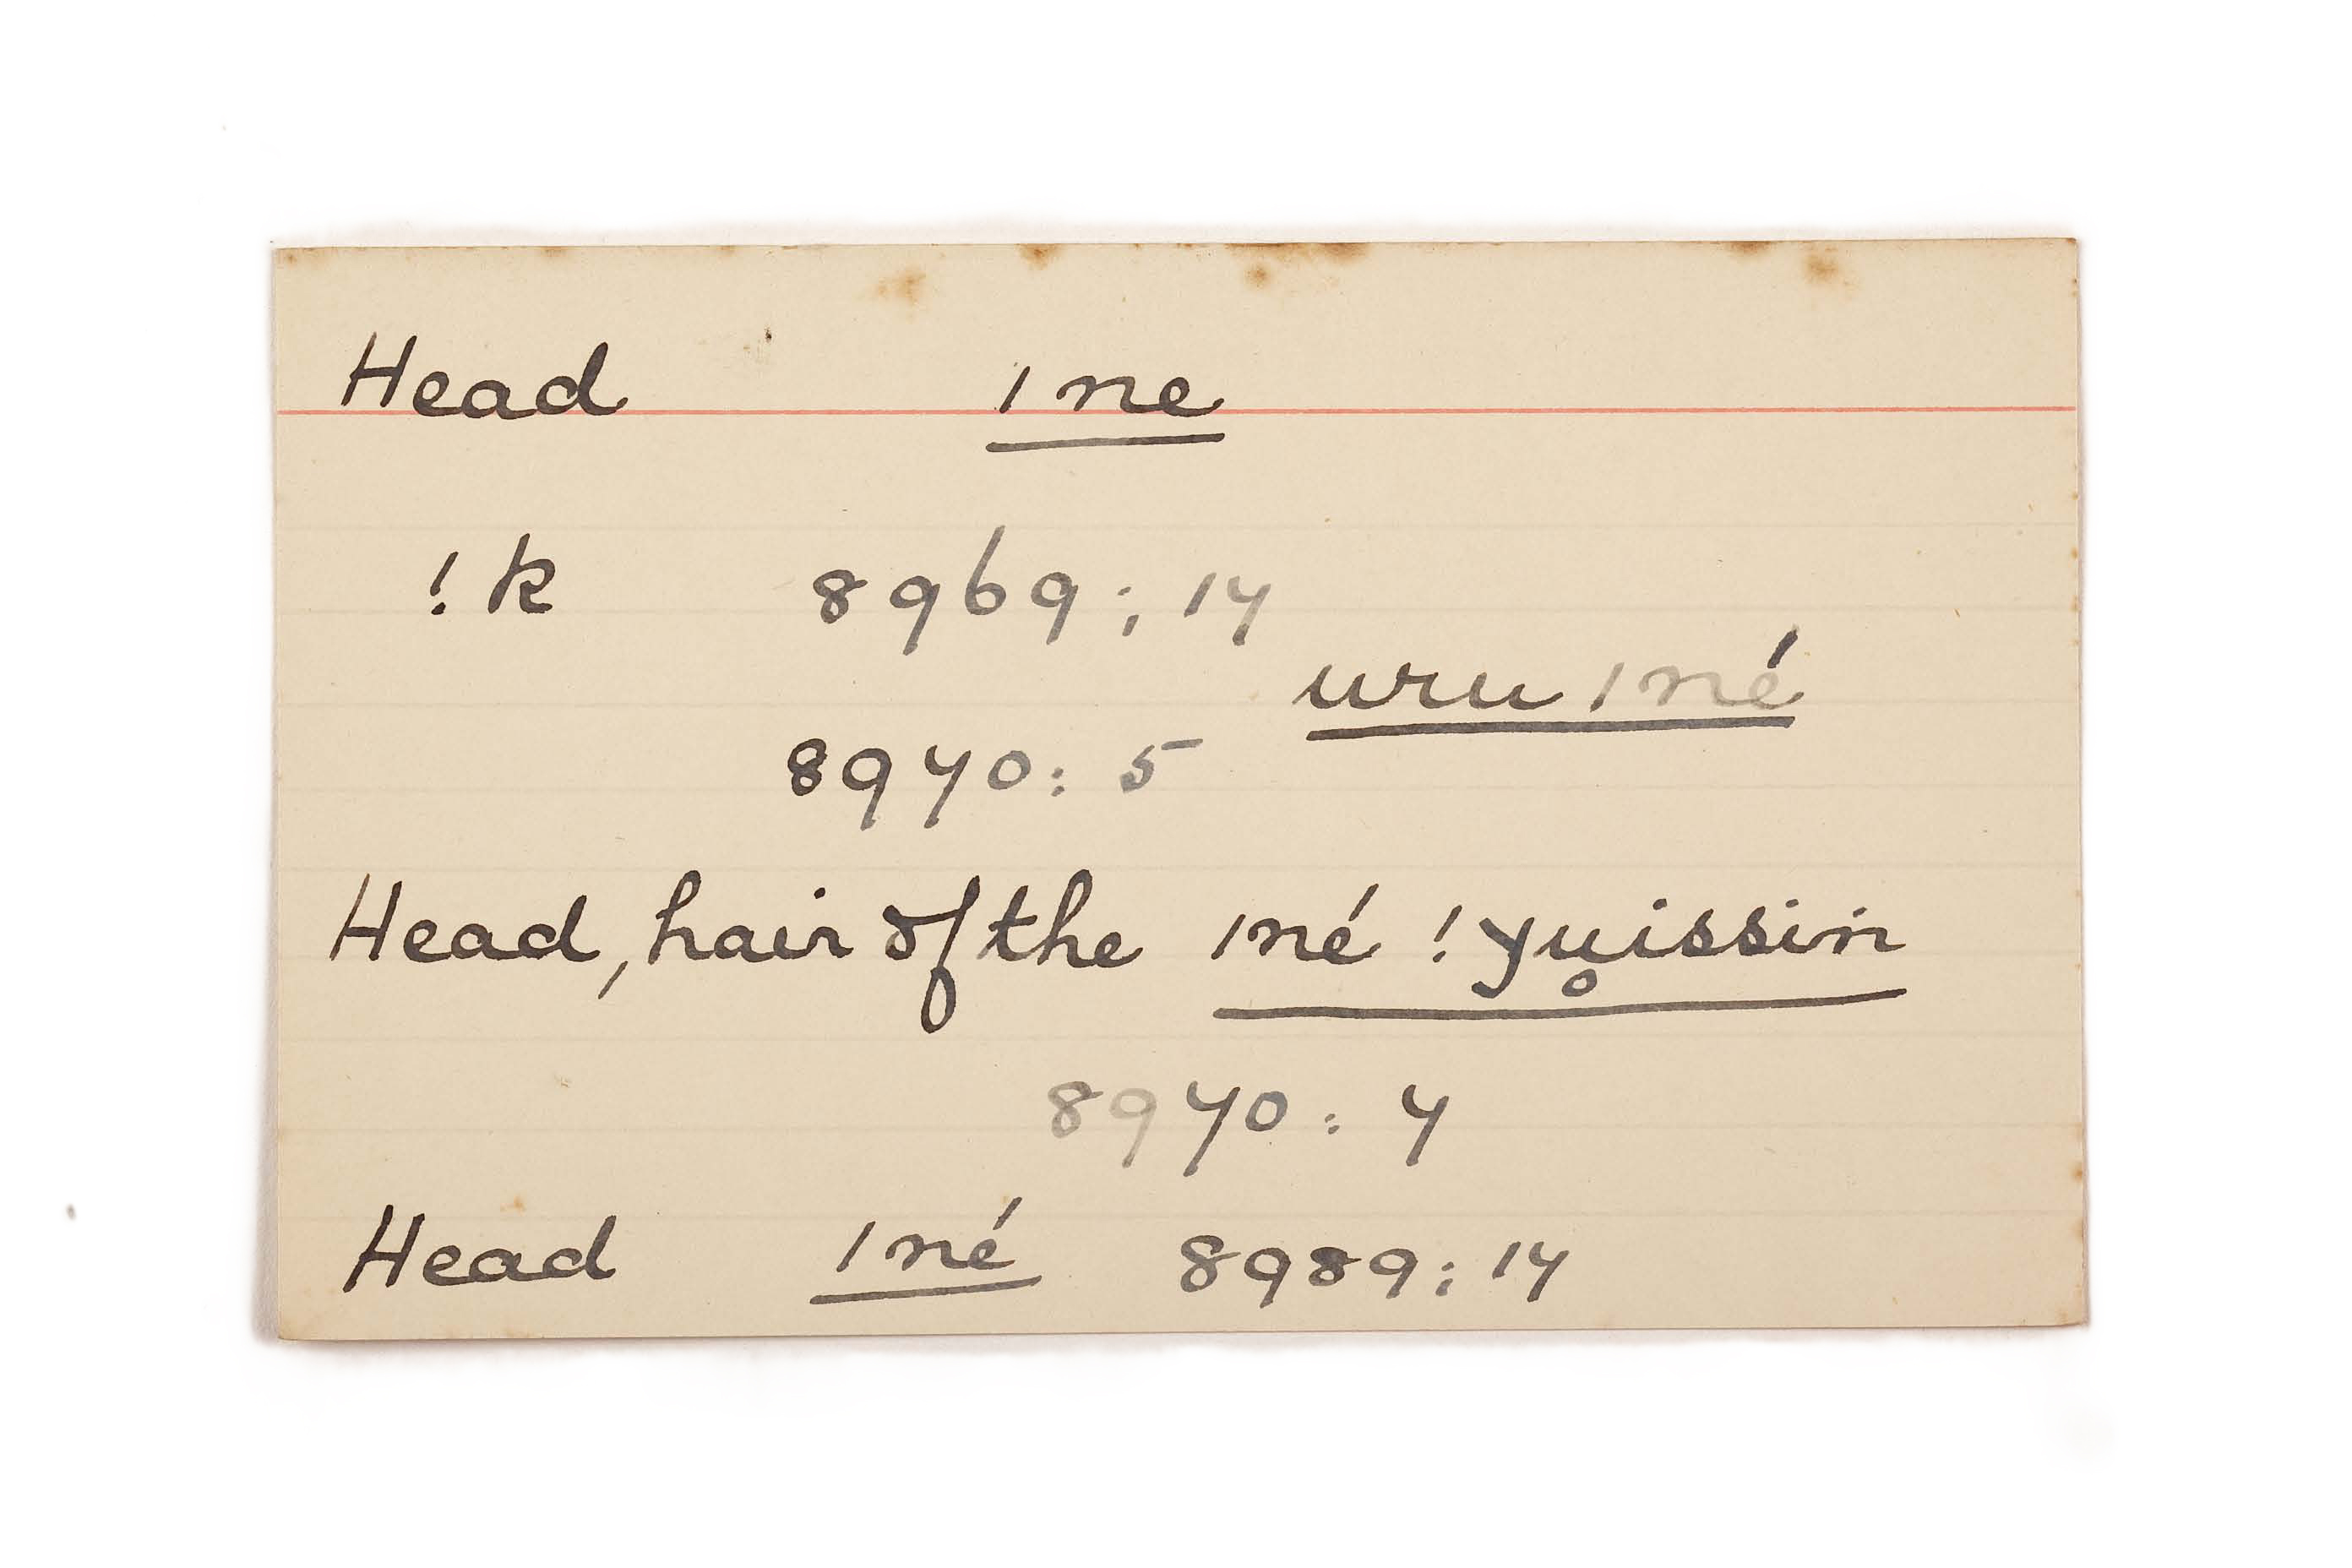 Head ǀne
!k 8969; 17
uru ǀné
8970: 5
Head, hair of the ǀné !yu̥issiṅ
8970: 7
Head ǀné 8989; 17